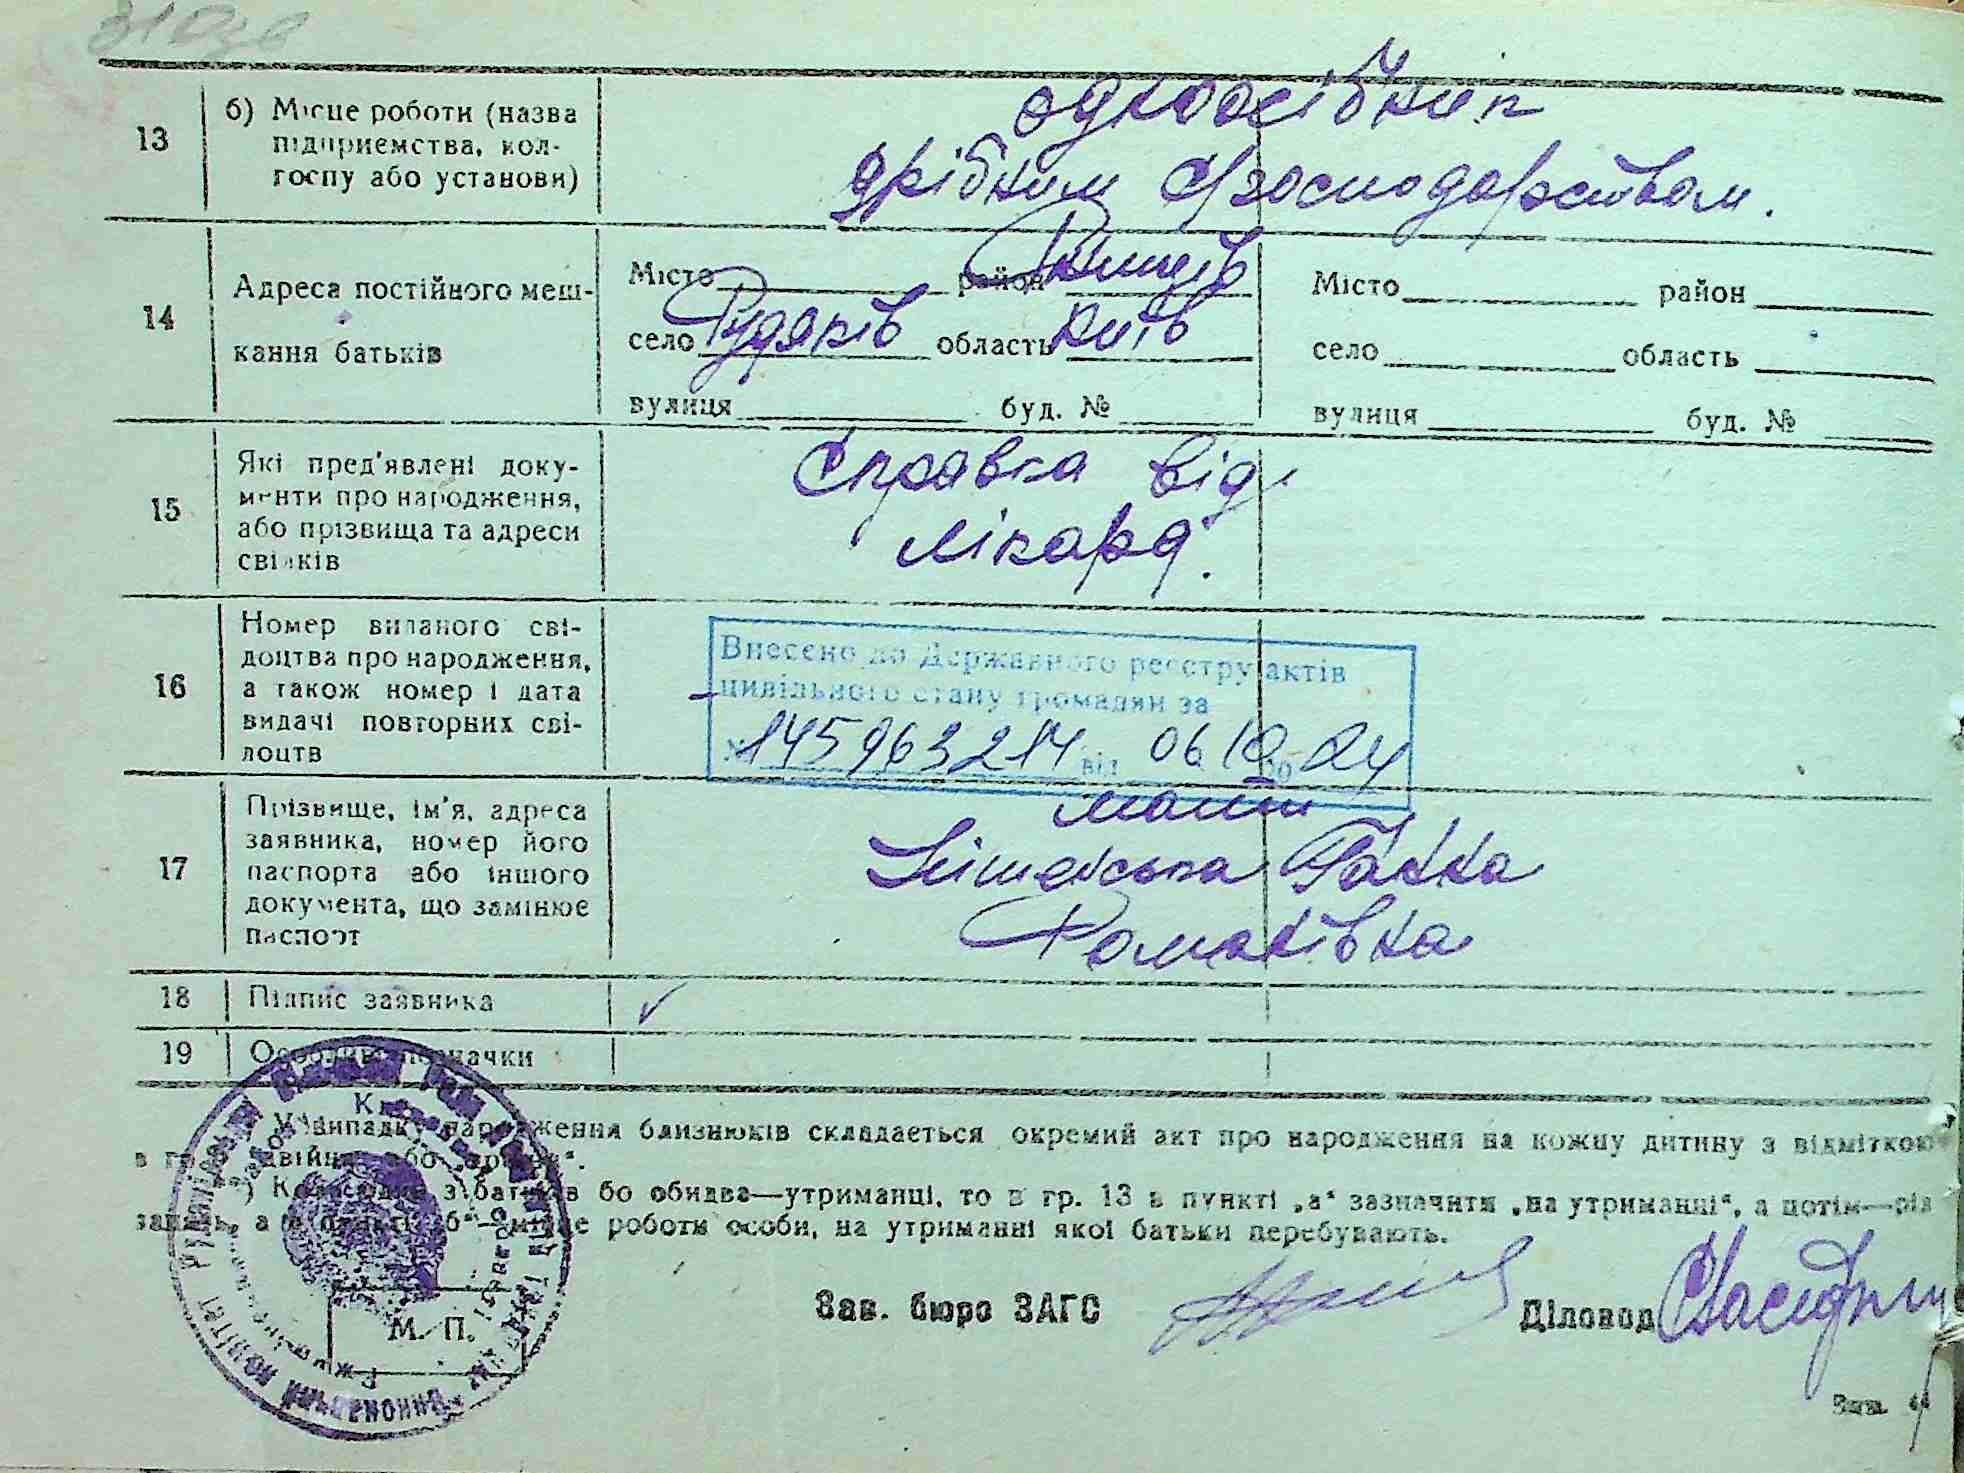 13
б) Місце роботи (назва
підприємства, кол-
госпу або установи)
одноосібник
дрібним господарством.
14
Адреса постійного меш-
кання батьків
Місто район
село Рудяків область Київ
вулиця буд. №
Місто район
село область
вулиця буд. №
15
Які пред'явлені доку-
менти про народження,
або прізвища та адреси
свідків
Справка від
лікаря.
16
Номер виданого сві-
доцтва про народження,
а також номер і дата
видачі повторних сві-
доцтв
Внесено до Державного реєстру актів
цивільного стану громадян за
№ 145963214 від 06 10 2024
17
Прізвище, ім'я, адреса
заявника, номер його
паспорта або іншого
документа, що замінює
паспорт
мати
Ганна
Романівна
18
Підпис заявника
19
Особливі позначки
У випадку народження близнюків складається окремий акт про народження на кожну дитину з відміткою
в гр. двійня або „трійня“.
) Коли один з батьків або обидва—утриманці, то в гр. 13 в пункті „а“ зазначити „на утриманні“, а потім—рід
занять, а в пункті „б“—місце роботи особи, на утриманні якої батьки перебувають.
Зав. бюро ЗАГС
Діловод
М. П.